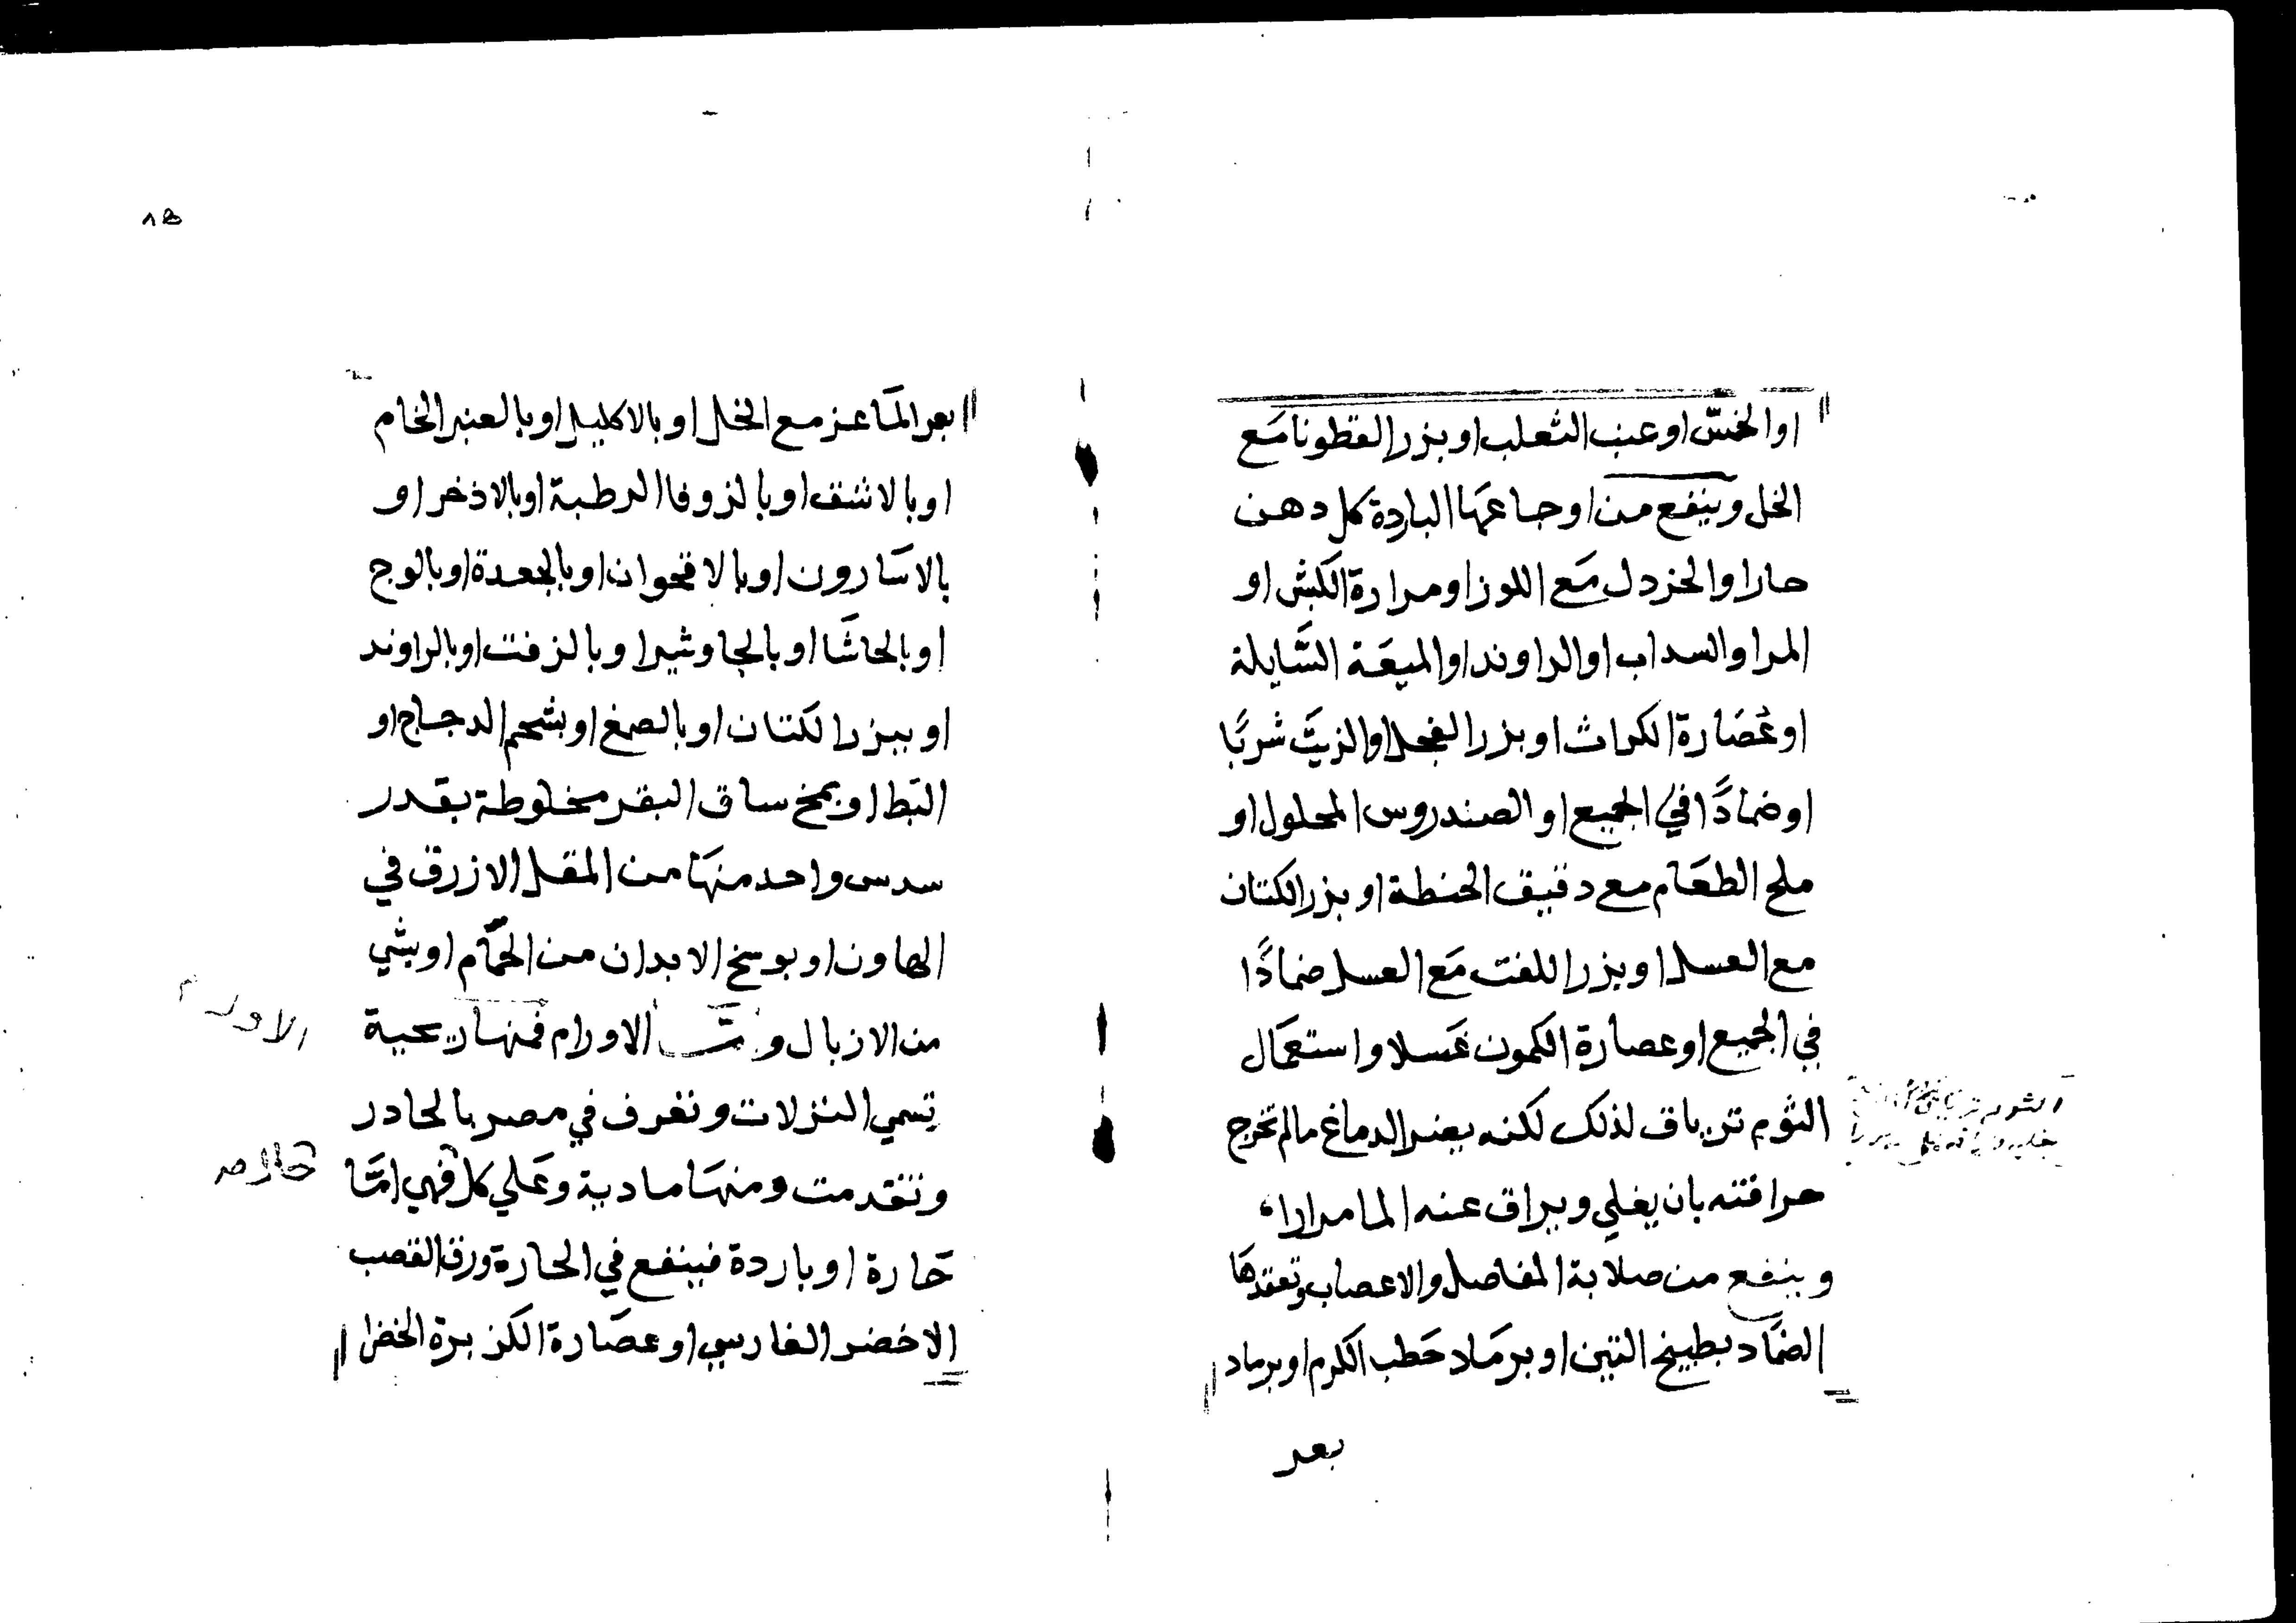 او الخسّ او عنب الثعلب او بزر القطونا مَع
الخل وينفع من اوجاعهَا الباردة كل دهن
حار او الخردل مَع اللوز او مرارة الكبش او
المر او السداب او الراوند او الميعَة السَّايلة
او عُصَارة الكراث او بزر الفجل او الزيتَ شربًا
او ضمادًا في الجميع او الصندروس المحلول او
ملح الطعَام مع دقيق الحنطة او بزر الكتان
مع العسل او بزر اللفت مَع العسل ضمادًا
في الجميع او عصارة الكمون غَسلا واستعمَال
الثوم ترياق لذلك لكنه يضر الدماغ ما لم تخرج
حرافته بان يغلي ويراق عنه الما مرارا
وينفع من صلابة المفاصل والاعصاب وتعقدهَا
الضمَاد بطبيخ التين او برمَاد حَطب الكرم او برماد
بعر
بعر المَاعز مع الخل او بالاكليل او بالعنبر الخام
او بالاشق او بالزوفا الرطبة او بالاذخر او
بالاسَارون او بالاقحوان او بالجعدة او بالوج
او بالحاشَا او بالجاوشير او بالزفت او بالراوند
او ببزر الكتان او بالصمغ او بشحم الدجاج او
البَط او بمخ ساق البقر مخلوطة بقدر
سدس واحد منهَا من المقل الازرق في
الهاون او بوسخ الابدان من الحمَّام او بشي
من الازبال و الاورام فمنها ريحية
تسمي النزلات وتعرف في مصر بالحادر
وتقدمت ومنهَا مادية وعَلي كل فهي امَّا
حَارة او باردة فينفع في الحارة ورق القصب
الاخضر الفارسي او عصَارة الكزبرة الخضرا